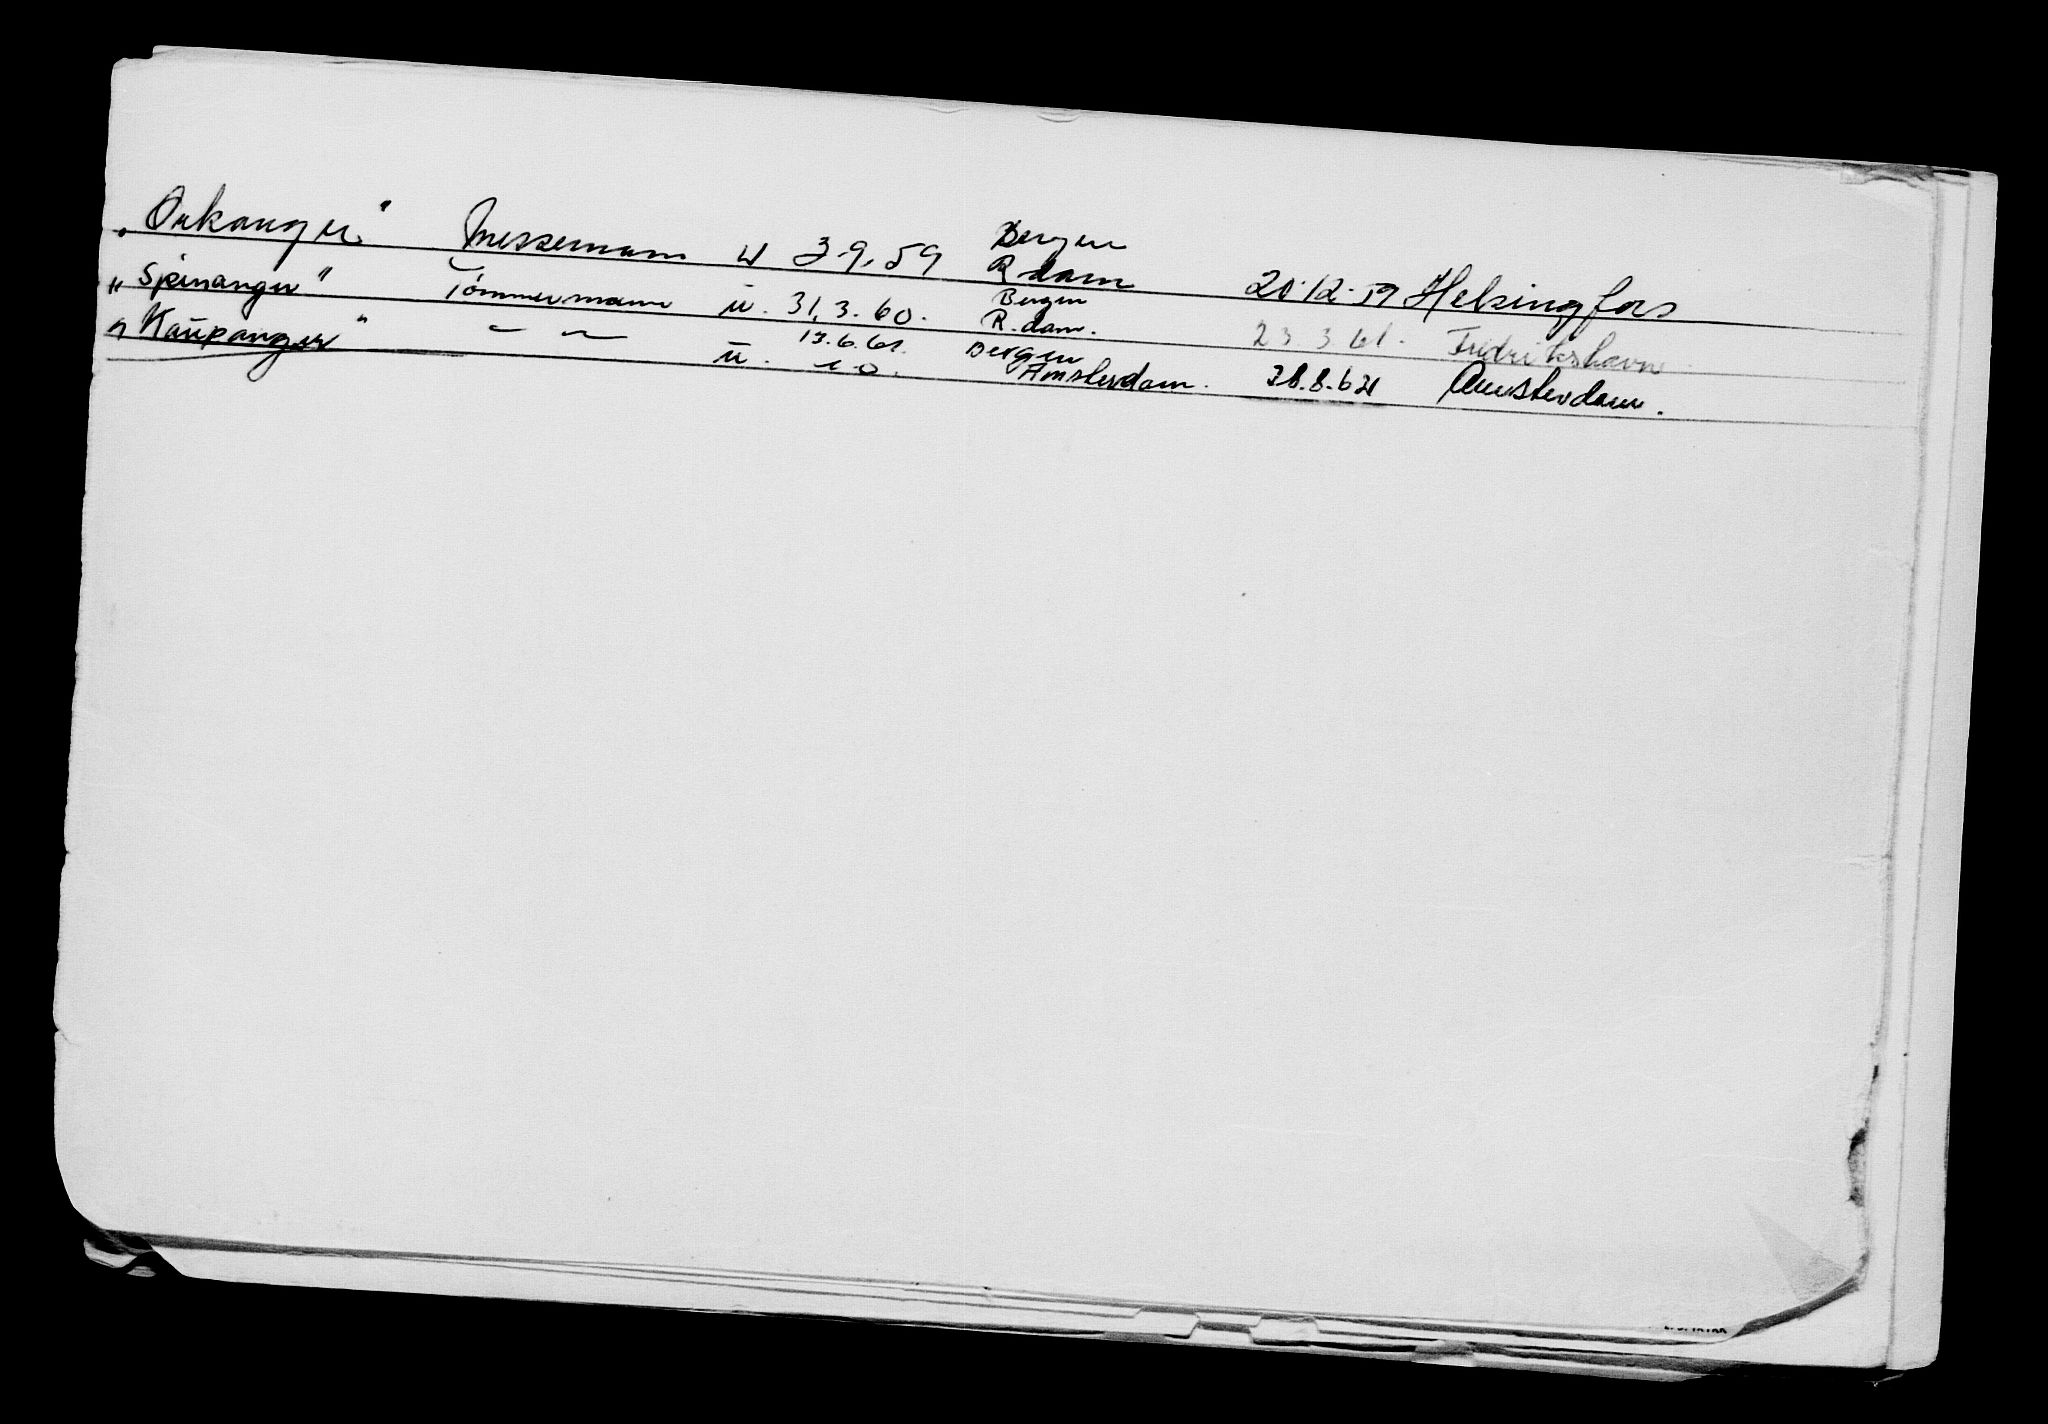 "Orkanger" Messemann u 3 9. 59 Bergen R dam 20.12.59 Helsingfors
"Spinanger" Tømmermann u. 31.3.60. Bergen R.dam. 23 3 61. Fredrikshavn
"Kaupanger" – – u. 13.6.61. Bergen Amsterdam. 28.8.62 Amsterdam.